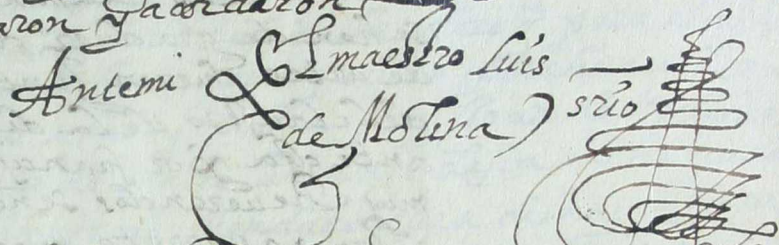 aron y acordaron
Antemi El maestro Luis
de Molina srio